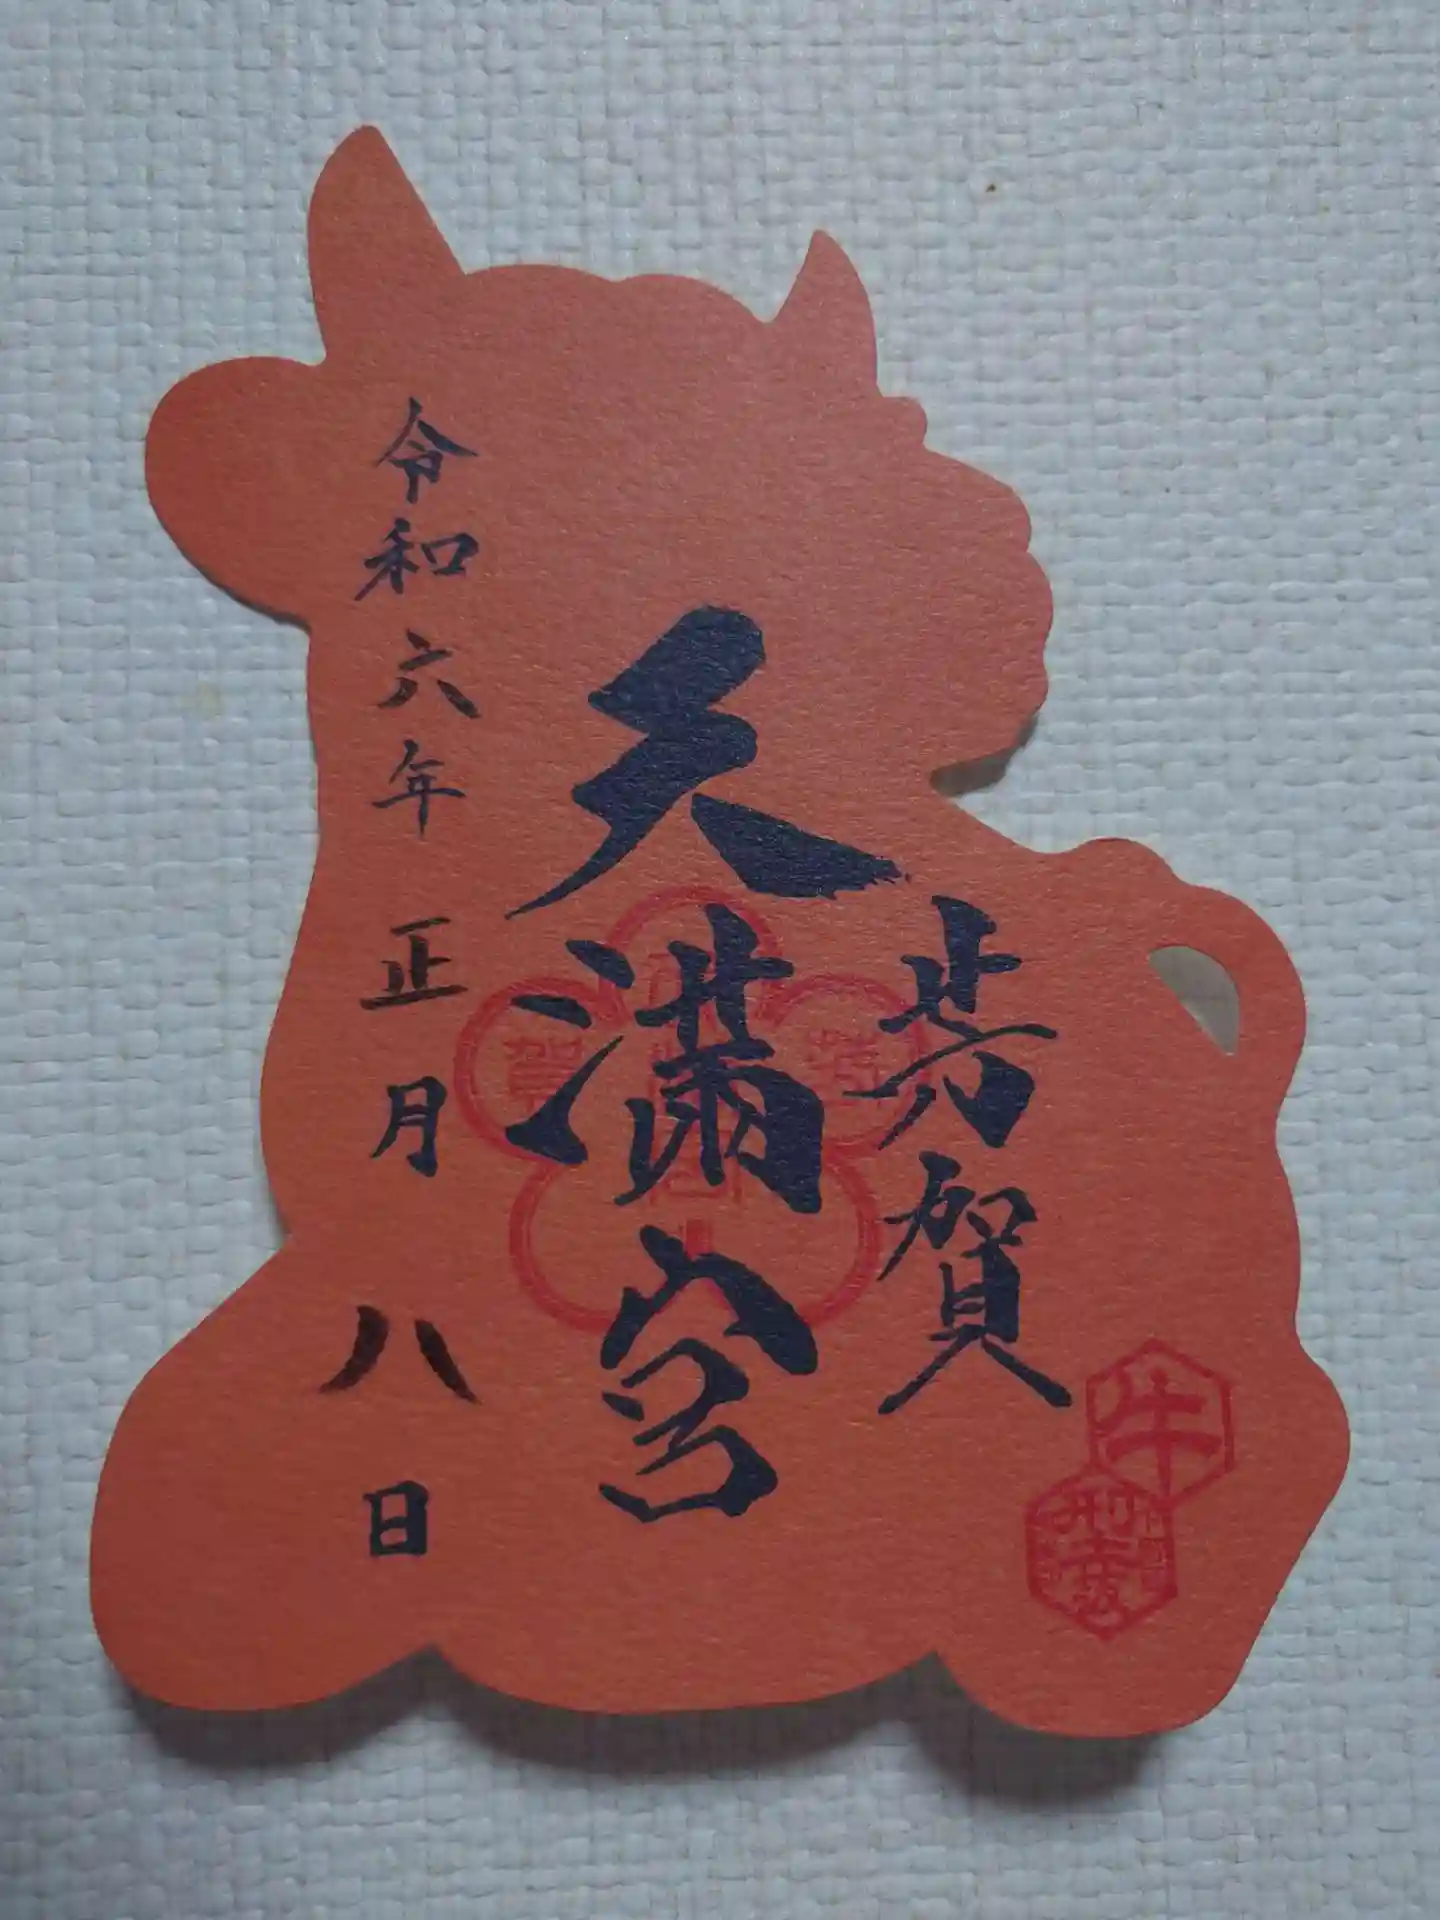 芳賀
天満宮
令和六年正月八日
牛